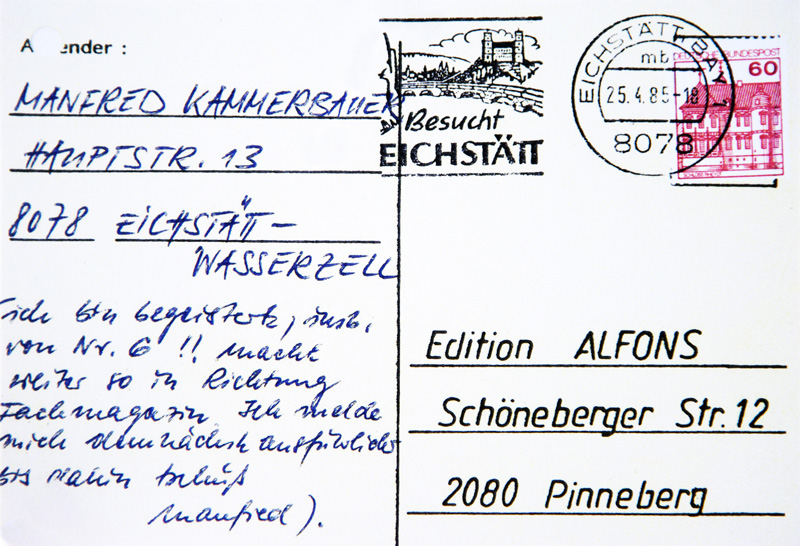 A ender :
MANFRED KAMMERBAUER
HAUPTSTR. 13
8078 EICHSTÄTT-
WASSERZELL
(ich bin begeistert, insb.
von Nr. 6 !! macht
weiter so in Richtung
Fachmagazin. Ich melde
mich demnächst ausführlicher
bis dahin tschüß
Manfred).
Besucht
EICHSTÄTT
EICHSTÄTT, BAY 1
mb
25.4.85-18
8078
DEUTSCHE BUNDESPOST
60
Edition ALFONS
Schöneberger Str. 12
2080 Pinneberg